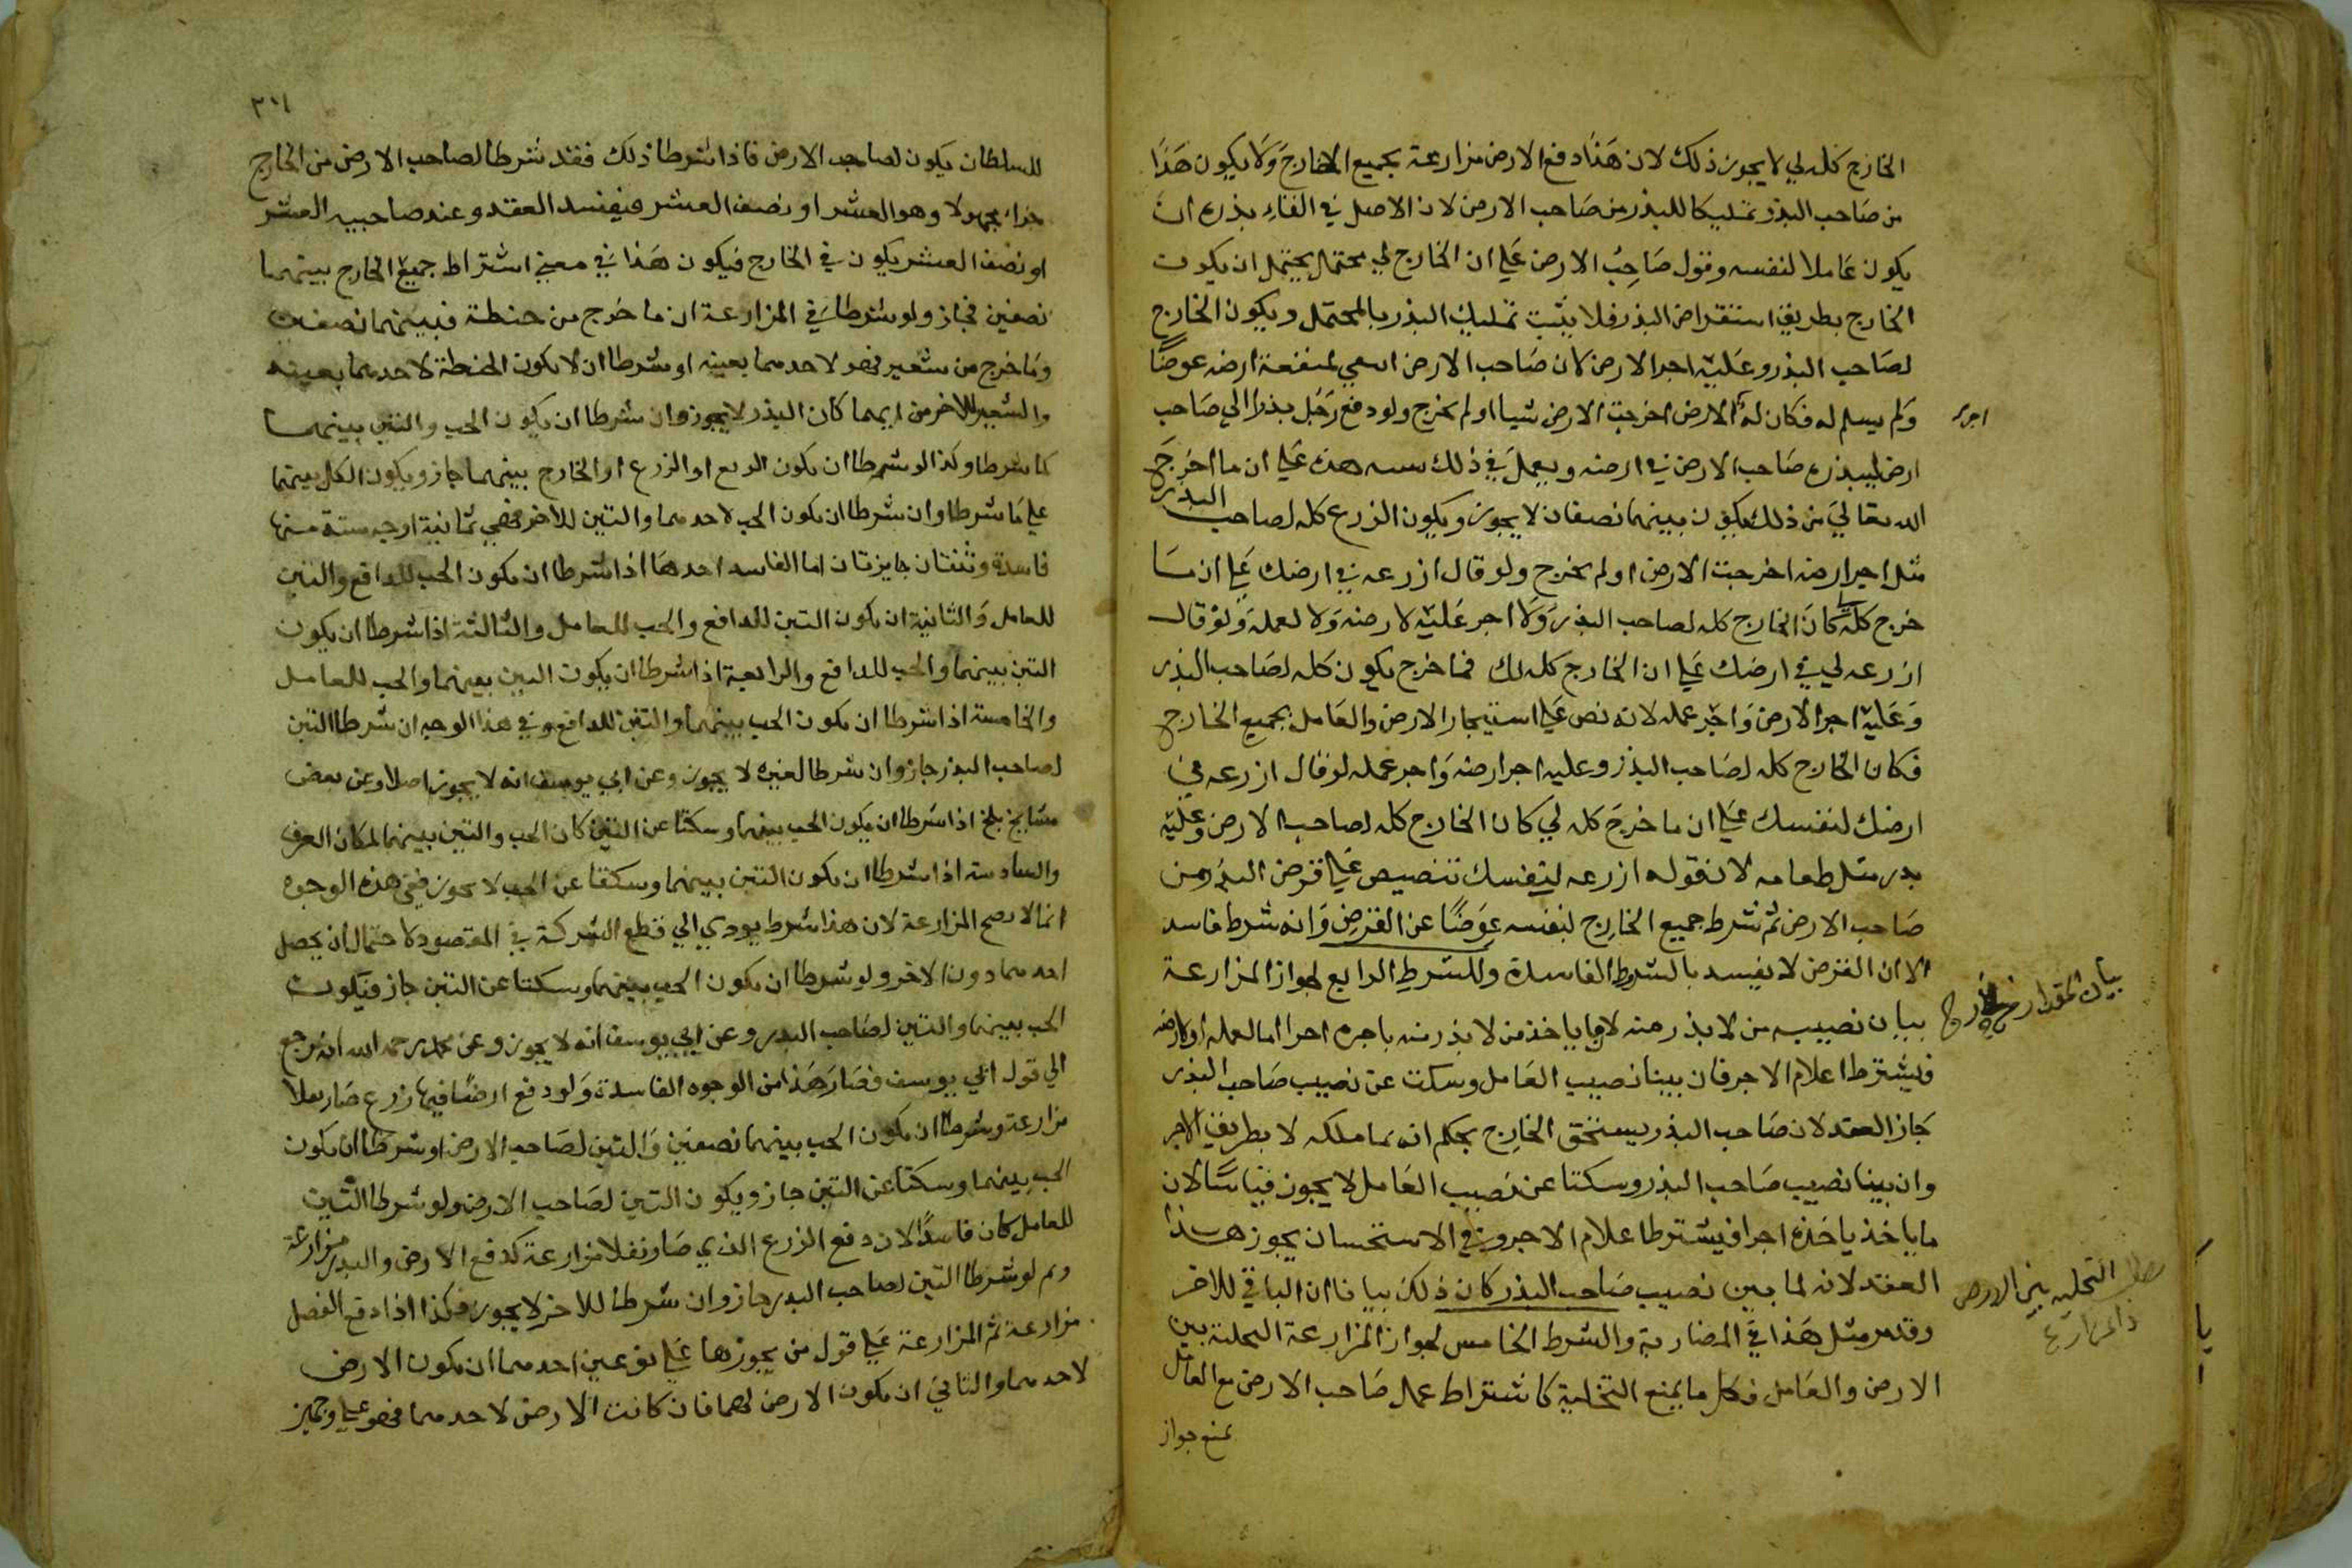 الخارج كله لي لا يجوز ذلك لان هذا دفع الارض مزارعة بجميع الخارج ولا يكون هذا
من صاحب البذر تمليكا للبذر من صاحب الارض لان الاصل في القاء بذره ان
يكون عاملا لنفسه وقول صاحب الارض على ان الخارج لي محتمل يحتمل ان يكون
الخارج بطريق استقراض البذر فلا يثبت تمليك البذر بالمحتمل ويكون الخارج
لصاحب البذر وعليه اجر الارض كان صاحب الارض ابتغى لمنفعة ارضه عوضا
ولم يسلم له فكان له الارض اخرجت الارض شيا او لم تخرج ولو دفع رجل بذرا الى صاحب
اجر
ارض ليبذره صاحب الارض في ارضه ويعمل في ذلك سنته هذه على ان ما اخرج
الله تعالى من ذلك يكون بينهما نصفان لا يجوز ويكون الزرع كله لصاحب البذر
مثل اجر ارضه اخرجت الارض او لم تخرج ولو قال ازرعه في ارضك على ان ما
خرج كله كان الخارج كله لصاحب البذر ولا اجر عليه لارضه ولا لعمله ولو قال
ازرعه لي في ارضك على ان الخارج كله لك فما خرج يكون كله لصاحب البذر
وعليه اجر الارض واجر عمله لانه نص على استيجار الارض والعامل بجميع الخارج
فكان الخارج كله لصاحب البذر وعليه اجر ارضه واجر عمله لو قال ازرعه في
ارضك لنفسك على ان ما خرج كله لي كان الخارج كله لصاحب الارض وعليه
بذر مثل طعامه لان قوله ازرعه لنفسك تنصيص على قرض البذر من
صاحب الارض ثم شرط جميع الخارج لنفسه عوضا عن القرض وانه شرط فاسد
الا ان القرض لا يفسد بالشروط الفاسدة وللشرط الرابع لجواز المزارعة
بيان المقدار من الخارج
بيان نصيب من لا بذر منه لان ما ياخذ من لا بذر منه باجره اجرا اما لعمله او لارضه
فيشترط اعلام الاجر فان بينا نصيب العامل وسكت عن نصيب صاحب البذر
جاز العقد لان صاحب البذر يستحق الخارج بحكم انه نما ملكه لا بطريق الاجر
وان بينا نصيب صاحب البذر وسكتا عن نصيب العامل لا يجوز قياسا لان
ما ياخذ ياخذه اجرا فيشترط اعلام الاجر وفي الاستحسان يجوز هذا
العقد لانه لما بين نصيب صاحب البذر كان ذلك بيانا ان الباقي للاخر
مطلب التخلية بين الارض
والمزارع
وقد مر مثل هذا في المضاربة والشرط الخامس لجواز المزارعة التخلية بين
الارض والعامل فكل ما يمنع التخلية كاشتراط عمل صاحب الارض مع العامل
يمنع جواز
٣٠١
للسلطان يكون لصاحب الارض فاذا شرطا ذلك فقد شرطا لصاحب الارض من الخارج
جزا مجهولا وهو العشر او نصف العشر فيفسد العقد وعند صاحبيه العشر
او نصف العشر يكون في الخارج فيكون هذا في معنى اشتراط جميع الخارج بينهما
نصفين فجاز ولو شرطا في المزارعة ان ما خرج من حنطة فبينهما نصفين
وما خرج من شعير فهو لاحدهما بعينه او شرطا ان لا يكون الحنطة لاحدهما بعينه
والشعير للاخر من ايهما كان البذر لا يجوز وان شرطا ان يكون الحب والتبن بينهما
كما شرطا وكذا لو شرطا ان يكون الريع او الزرع او الخارج بينهما جاز ويكون الكل بينهما
على ما شرطا وان شرطا ان يكون الحب لاحدهما والتبن للاخر فهي ثمانية اوجه ستة منها
فاسدة وثنتان جايزتان اما الفاسد احدها اذا شرطا ان يكون الحب للدافع والتبن
للعامل والثانية ان يكون التبن للدافع والحب للعامل والثالثة اذا شرطا ان يكون
التبن بينهما والحب للدافع والرابعة اذا شرطا ان يكون التبن بينهما والحب للعامل
والخامسة اذا شرطا ان يكون الحب بينهما والتبن للدافع وفي هذا الوجه ان شرطا التبن
لصاحب البذر جاز وان شرطا لغيره لا يجوز وعن ابي يوسف انه لا يجوز اصلا وعن بعض
مشايخ بلخ اذا شرطا ان يكون الحب بينهما وسكتا عن التبن كان الحب والتبن بينهما لمكان العرف
والسادسة اذا شرطا ان يكون التبن بينهما وسكتا عن الحب لا يجوز ففي هذه الوجوه
انما لا تصح المزارعة لان هذا شرط يودي الى قطع الشركة في المقصود لاحتمال ان يحصل
احدهما دون الاخر ولو شرطا ان يكون الحب بينهما وسكتا عن التبن جاز فيكون
الحب بينهما والتبن لصاحب البذر وعن ابي يوسف انه لا يجوز وعن محمد رحمه الله انه رجع
الى قول ابي يوسف فصار هذا من الوجوه الفاسدة ولو دفع ارضا فيها زرع صار بقلا
مزارعة وشرطا ان يكون الحب بينهما نصفين والتبن لصاحب الارض او شرطا ان يكون
الحب بينهما وسكتا عن التبن جاز ويكون التبن لصاحب الارض ولو شرطا التبن
للعامل كان فاسدا لان دفع الزرع الذي صار بقلا مزارعة كدفع الارض والبذر مزارعة
وثم لو شرطا التبن لصاحب البذر جاز وان شرطا للاخر لا يجوز فكذا اذا دفع الفصل
مزارعة ثم المزارعة على قول من يجوزها على نوعين احدهما ان يكون الارض
لاحدهما والثاني ان يكون الارض لهما فان كانت الارض لاحدهما فهو على وجهين